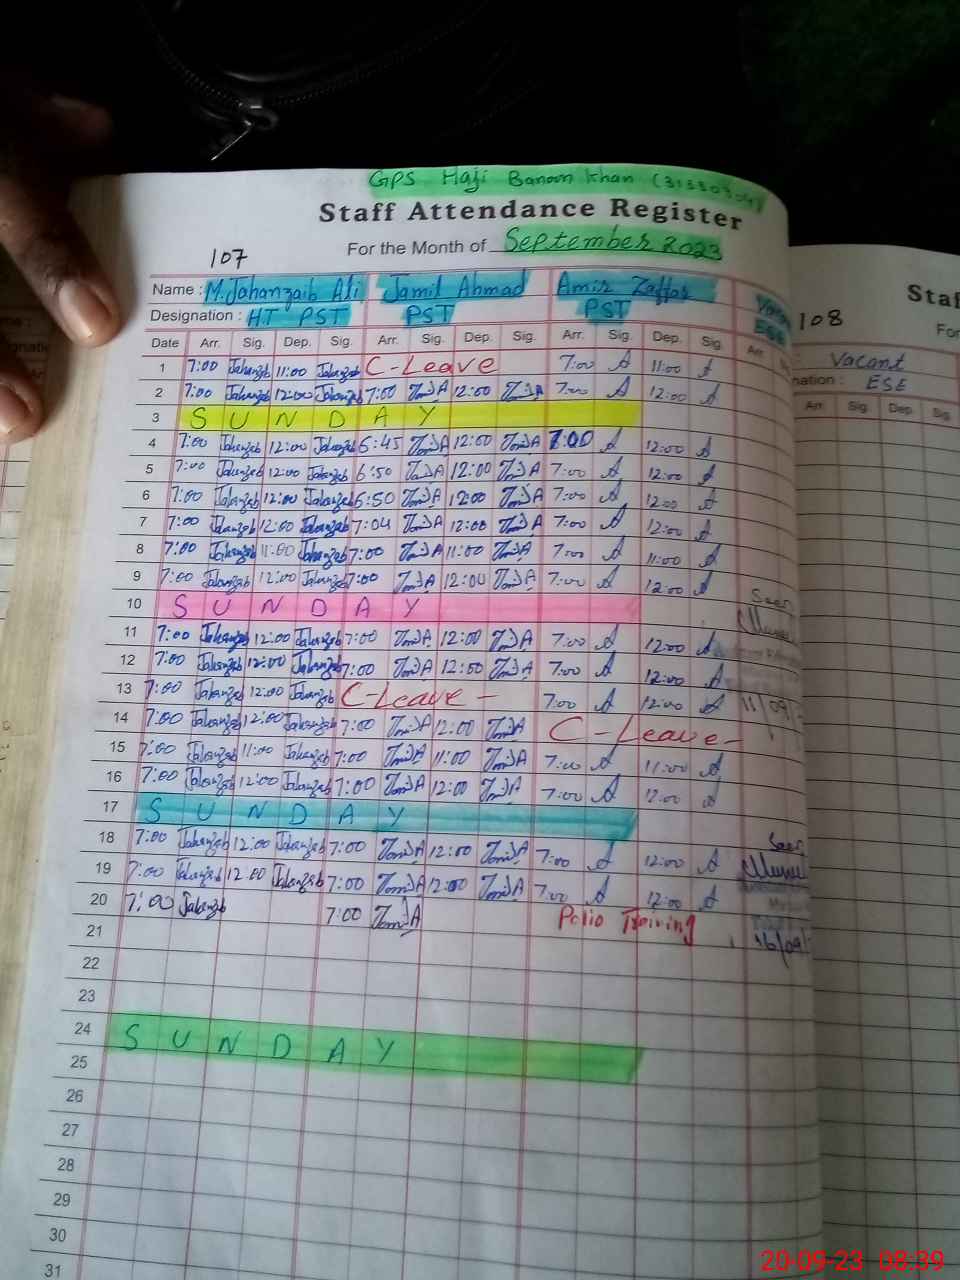 GPS Haji Banoon Khan
Staff Attendance Register
107 For the Month of September 2023
Name : M. Jahanzaib Ali Jamil Ahmad Amir Zaffar
Designation : HT PST PST PST ESE
Date Arr. Sig. Dep. Sig. Arr. Sig. Dep. Sig. Arr. Sig. Dep. Sig. Arr.
1 7:00 Jahanzab 11:00 Jahanzab C-Leave 7:00 A 11:00 A
2 7:00 Jahanzab 12:00 Jahanzab 7:00 JamilA 12:00 JamilA 7:00 A 12:00 A
3 S U N D A Y
4 7:00 Jahanzab 12:00 Jahanzab 6:45 JamilA 12:00 JamilA 7:00 A 12:00 A
5 7:00 Jahanzab 12:00 Jahanzab 6:50 JamilA 12:00 JamilA 7:00 A 12:00 A
6 7:00 Jahanzab 12:00 Jahanzab 6:50 JamilA 12:00 JamilA 7:00 A 12:00 A
7 7:00 Jahanzab 12:00 Jahanzab 7:04 JamilA 12:00 JamilA 7:00 A 12:00 A
8 7:00 Jahanzab 11:00 Jahanzab 7:00 JamilA 11:00 JamilA 7:00 A 11:00 A
9 7:00 Jahanzab 12:00 Jahanzab 7:00 JamilA 12:00 JamilA 7:00 A 12:00 A
10 S U N D A Y Seen
11 7:00 Jahanzab 12:00 Jahanzab 7:00 JamilA 12:00 JamilA 7:00 A 12:00 A
12 7:00 Jahanzab 12:00 Jahanzab 7:00 JamilA 12:00 JamilA 7:00 A 12:00 A
13 7:00 Jahanzab 12:00 Jahanzab C-Leave - 7:00 A 12:00 A 11/09/
14 7:00 Jahanzab 12:00 Jahanzab 7:00 JamilA 12:00 JamilA C-Leave-
15 7:00 Jahanzab 11:00 Jahanzab 7:00 JamilA 11:00 JamilA 7:00 A 11:00 A
16 7:00 Jahanzab 12:00 Jahanzab 7:00 JamilA 12:00 JamilA 7:00 A 12:00 A
17 S U N D A Y
18 7:00 Jahanzab 12:00 Jahanzab 7:00 JamilA 12:00 JamilA 7:00 A 12:00 A Seen
19 7:00 Jahanzab 12:00 Jahanzab 7:00 JamilA 12:00 JamilA 7:00 A 12:00 A
20 7:00 Jahanzab 7:00 JamilA Polio Training
21 16/09/
22
23
24 S U N D A Y
25
26
27
28
29
30
31
108
Vacant
ESE
Arr. Sig. Dep. Sig.
20-09-23 08:39